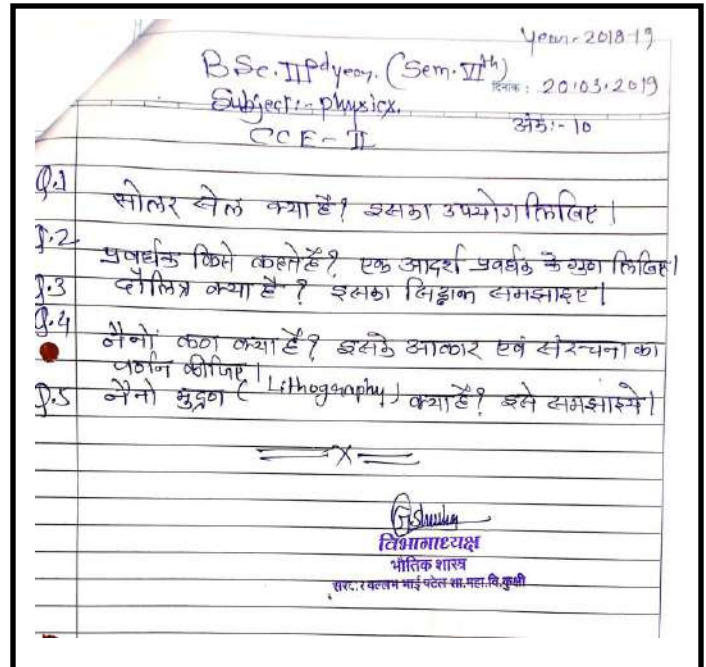 Year- 2018-19
B.Sc. IIIrd year. (Sem. VIth)
दिनांक : 20.03.2019
Subject :- physicx.
CCE - II
अंक :- 10
Q.1 सोलर सेल क्या है? इसका उपयोग लिखिए।
Q.2 प्रवर्धक किसे कहते है? एक आदर्श प्रवर्धक के गुण लिखिए।
Q.3 दौलित्र क्या है? इसका सिद्धान्त समझाइए।
Q.4 नैनों कण क्या है? इसके आकार एवं संरचना का
वर्णन कीजिए।
Q.5 नैनो मुद्रण (Lithography) क्या है? इसे समझाइये।
X
विभागाध्यक्ष
भौतिक शास्त्र
वल्लभ भाई पटेल शा.महा.वि.कुक्षी